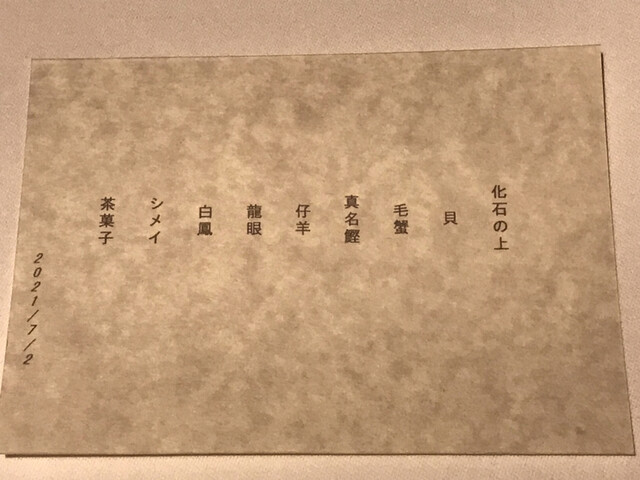 化石の上
貝
毛蟹
真名鰹
仔羊
龍眼
白鳳
シメイ
茶菓子
2021/7/2